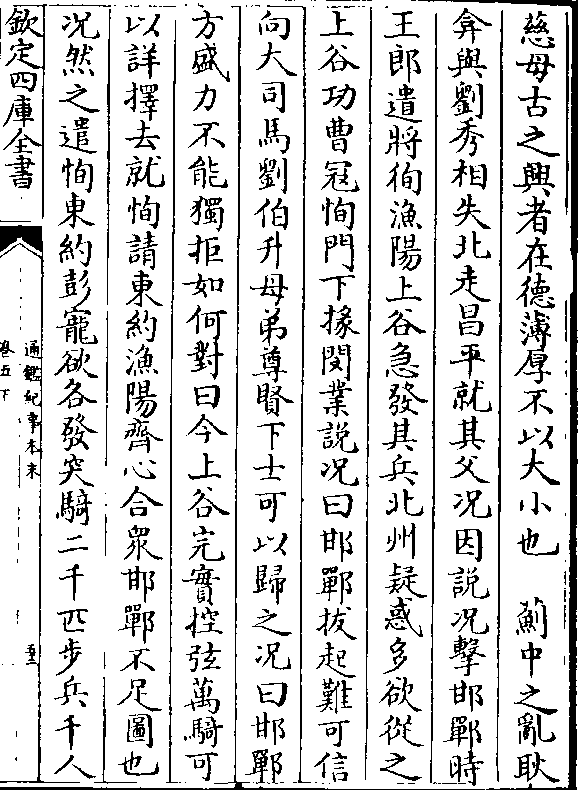 慈母古之興者在德薄厚不以大小也　薊中之亂耿
弇與劉秀相失北走昌平就其父况因説况擊邯鄲時
王郎遣將徇漁陽上谷急發其兵北州疑惑多欲從之
上谷功曹冦恂門下掾閔業説况曰邯鄲拔起難可信
向大司馬劉伯升母弟尊賢下士可以歸之况曰邯鄲
方盛力不能獨拒如何對曰今上谷完實控弦萬騎可
以詳擇去就恂請東約漁陽齊心合衆邯鄲不足圖也
况然之遣恂東約彭寵欲各發突騎二千匹步兵千人
欽定四庫全書
通鑑紀事本末
卷五下